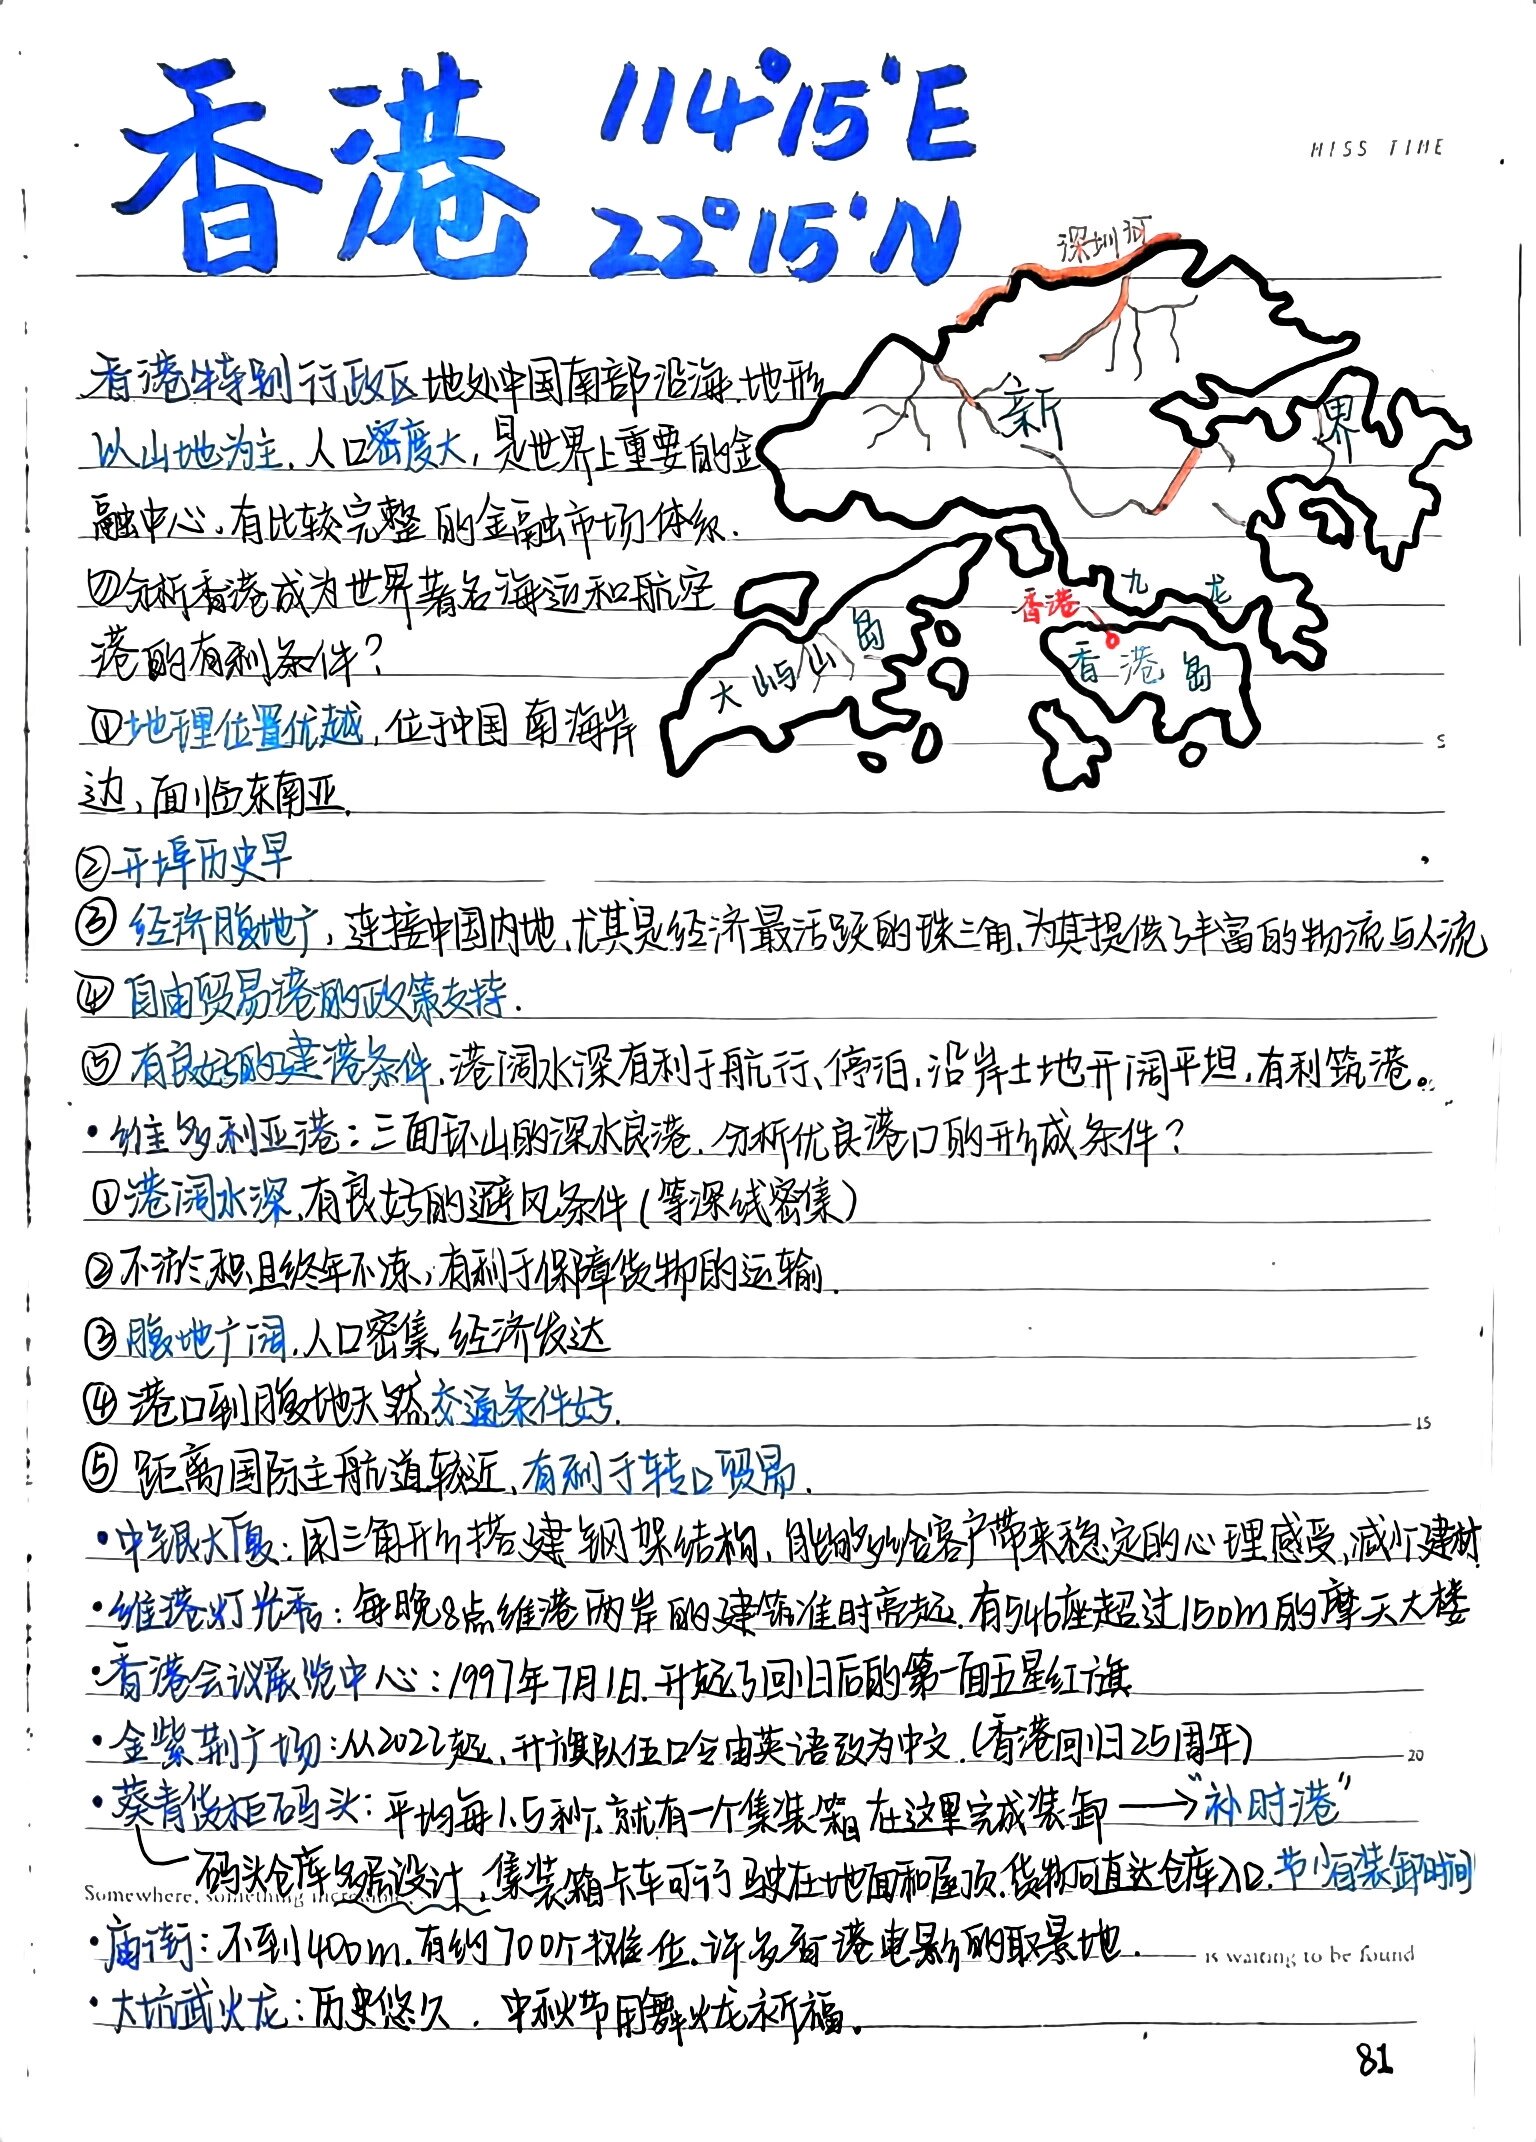 香港 114°15′E
22°15′N
MISS TIME
深圳河
新 界
九 龙
香港
香港岛
大屿山岛
香港特别行政区地处中国南部沿海.地形
以山地为主.人口密度大,是世界上重要的金
融中心.有比较完整的金融市场体系.
⑦分析香港成为世界著名海运和航空
港的有利条件?
①地理位置优越,位于中国南海岸
边,面临东南亚.
5
②开埠历史早
③经济腹地广,连接中国内地,尤其是经济最活跃的珠三角,为其提供了丰富的物流与人流
④自由贸易港的政策支持.
⑤有良好的建港条件,港阔水深有利于航行、停泊,沿岸土地开阔平坦,有利筑港。
·维多利亚港:三面环山的深水良港.分析优良港口的形成条件?
①港阔水深,有良好的避风条件(等深线密集)
②不淤积且终年不冻,有利于保障货物的运输.
③腹地广阔.人口密集.经济发达
④港口到腹地天然交通条件好.
15
⑤距离国际主航道较近,有利于转口贸易.
·中银大厦:用三角形搭建钢架结构,能够给客户带来稳定的心理感受,减少建材
·维港灯光秀:每晚8点维港两岸的建筑准时亮起.有546座超过150m的摩天大楼
·香港会议展览中心:1997年7月1日.升起了回归后的第一面五星红旗
·金紫荆广场:从2022起,升旗队伍口令由英语改为中文.(香港回归25周年)
20
·葵青货柜码头:平均每1.5秒,就有一个集装箱在这里完成装卸→"补时港"
码头仓库多层设计,集装箱卡车可行驶在地面和屋顶.货物可直达仓库入口.节省装卸时间
Somewhere, something incredible
·庙街:不到400m.有约700个摊位.许多香港电影的取景地.
is waiting to be found
·大坑武火龙:历史悠久.中秋节用舞火龙祈福。
81